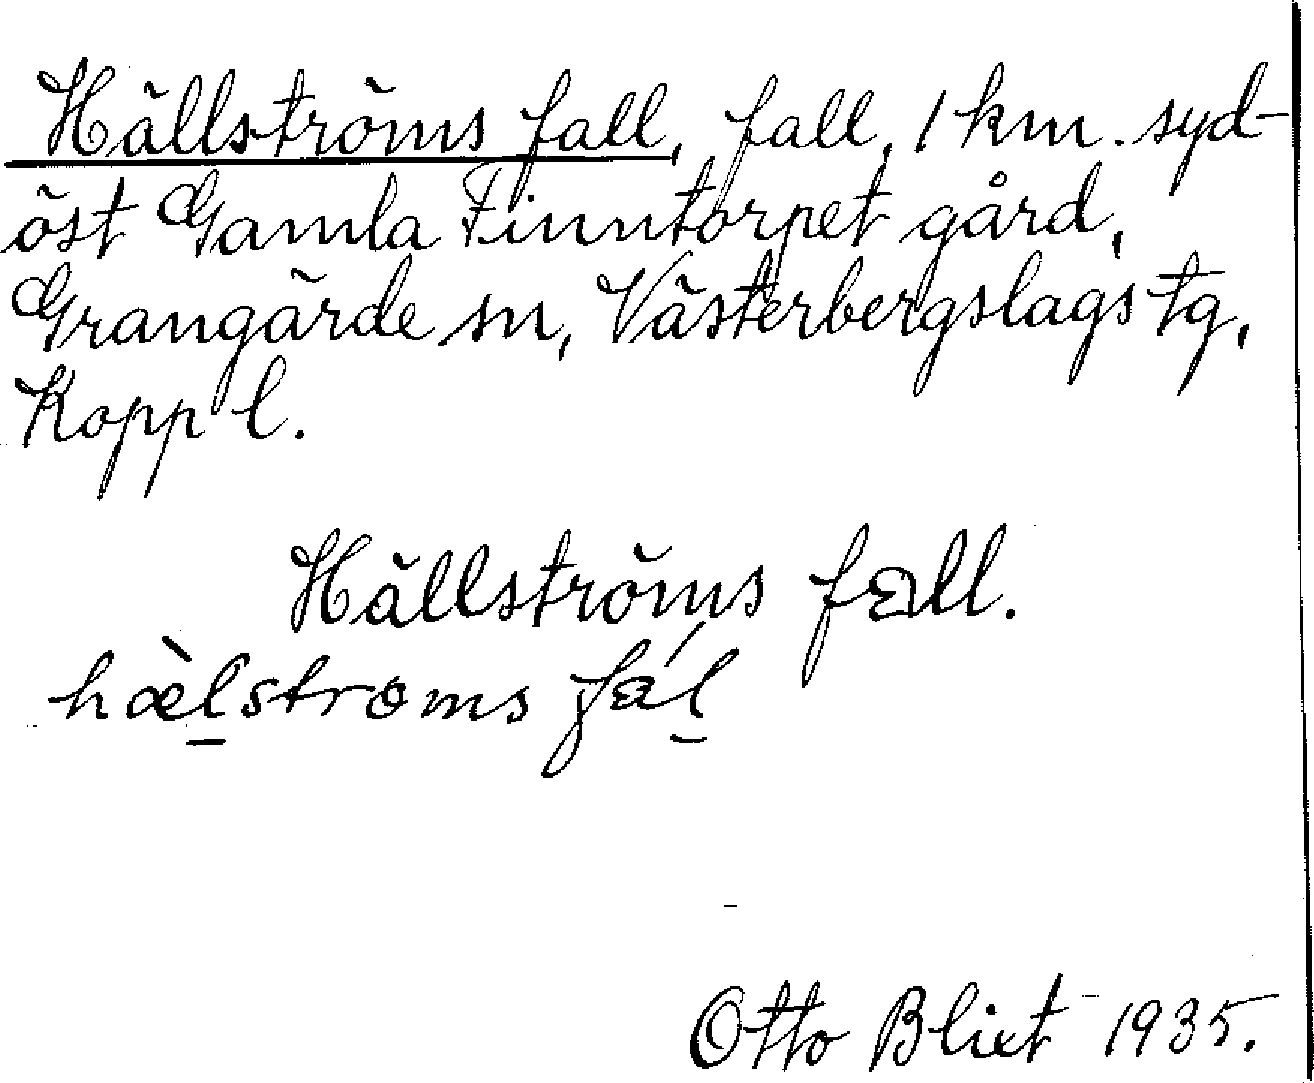 Hällströms fall, fall, 1 km. syd-
öst Gamla Finntorpet gård,
Grangärde sn, Västerbergslags tg,
Kopp l.
Hällströms fall.
hæ̀l̠stroms fál̠
Otto Blixt 1935.